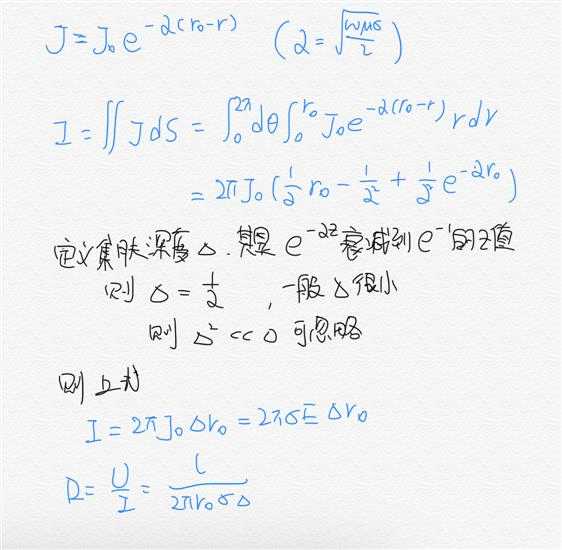 J=J₀e^{-α(r₀-r)} (α=√(ωμσ/2))
I=∬JdS=∫₀^{2π}dθ∫₀^{r₀}J₀e^{-α(r₀-r)}rdr
=2πJ₀(1/α r₀-1/α²+1/α² e^{-αr₀})
定义集肤深度Δ.其是e^{-αz}衰减到e^{-1}的z值
则Δ=1/α,一般Δ很小
则Δ²<<Δ可忽略
则上式
I=2πJ₀Δr₀=2πσEΔr₀
R=U/I=l/(2πr₀σΔ)